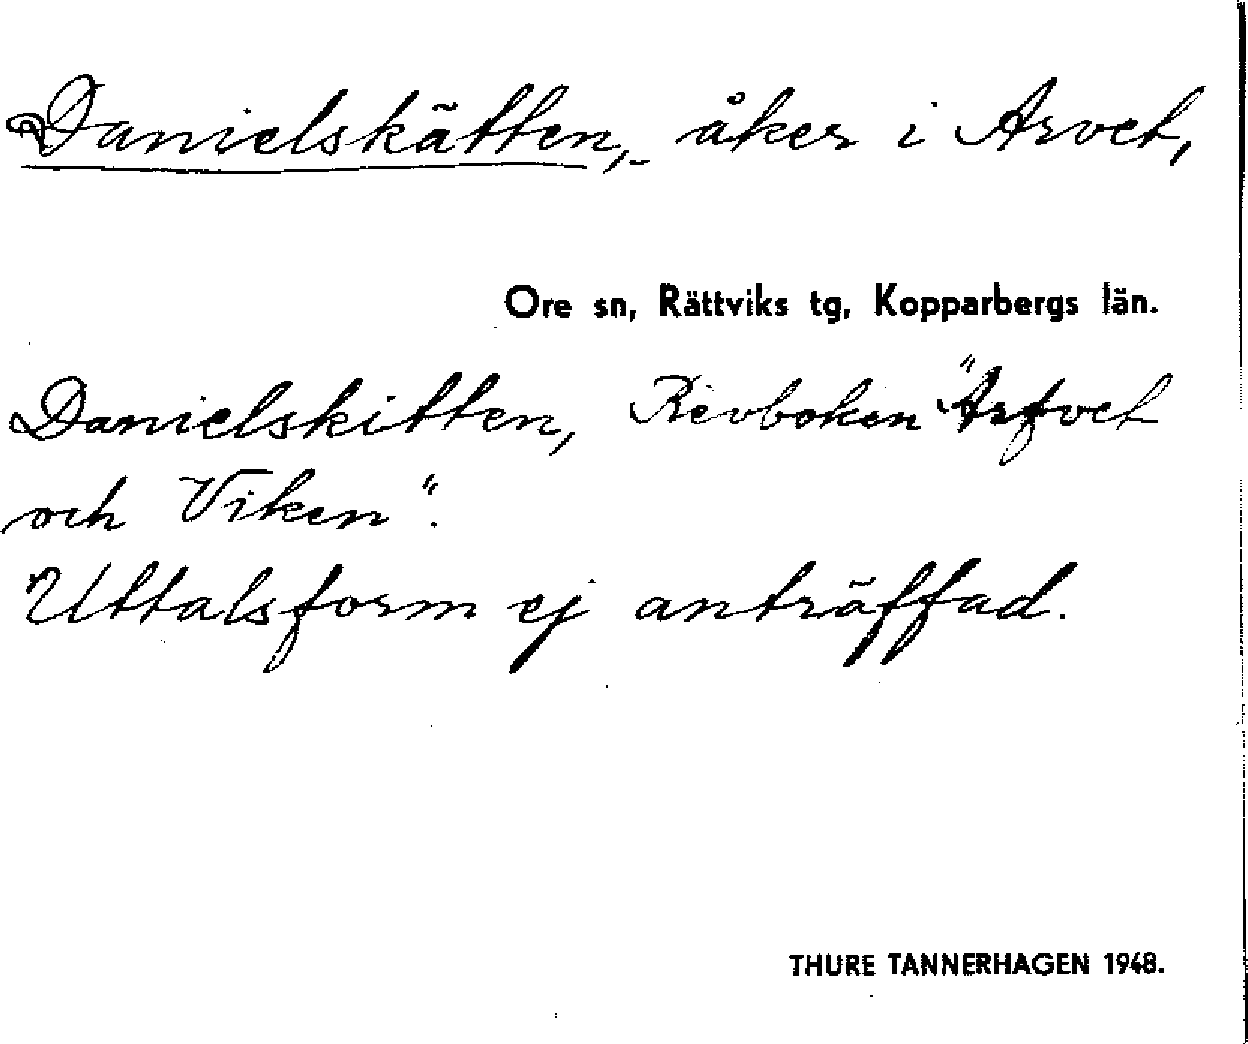 Danielskätten, åker i Arvet,
Ore sn, Rättviks tg, Kopparbergs län.
Danielskitten, Revboken "Arfvet
och Viken".
Uttalsform ej anträffad.
THURE TANNERHAGEN 1948.